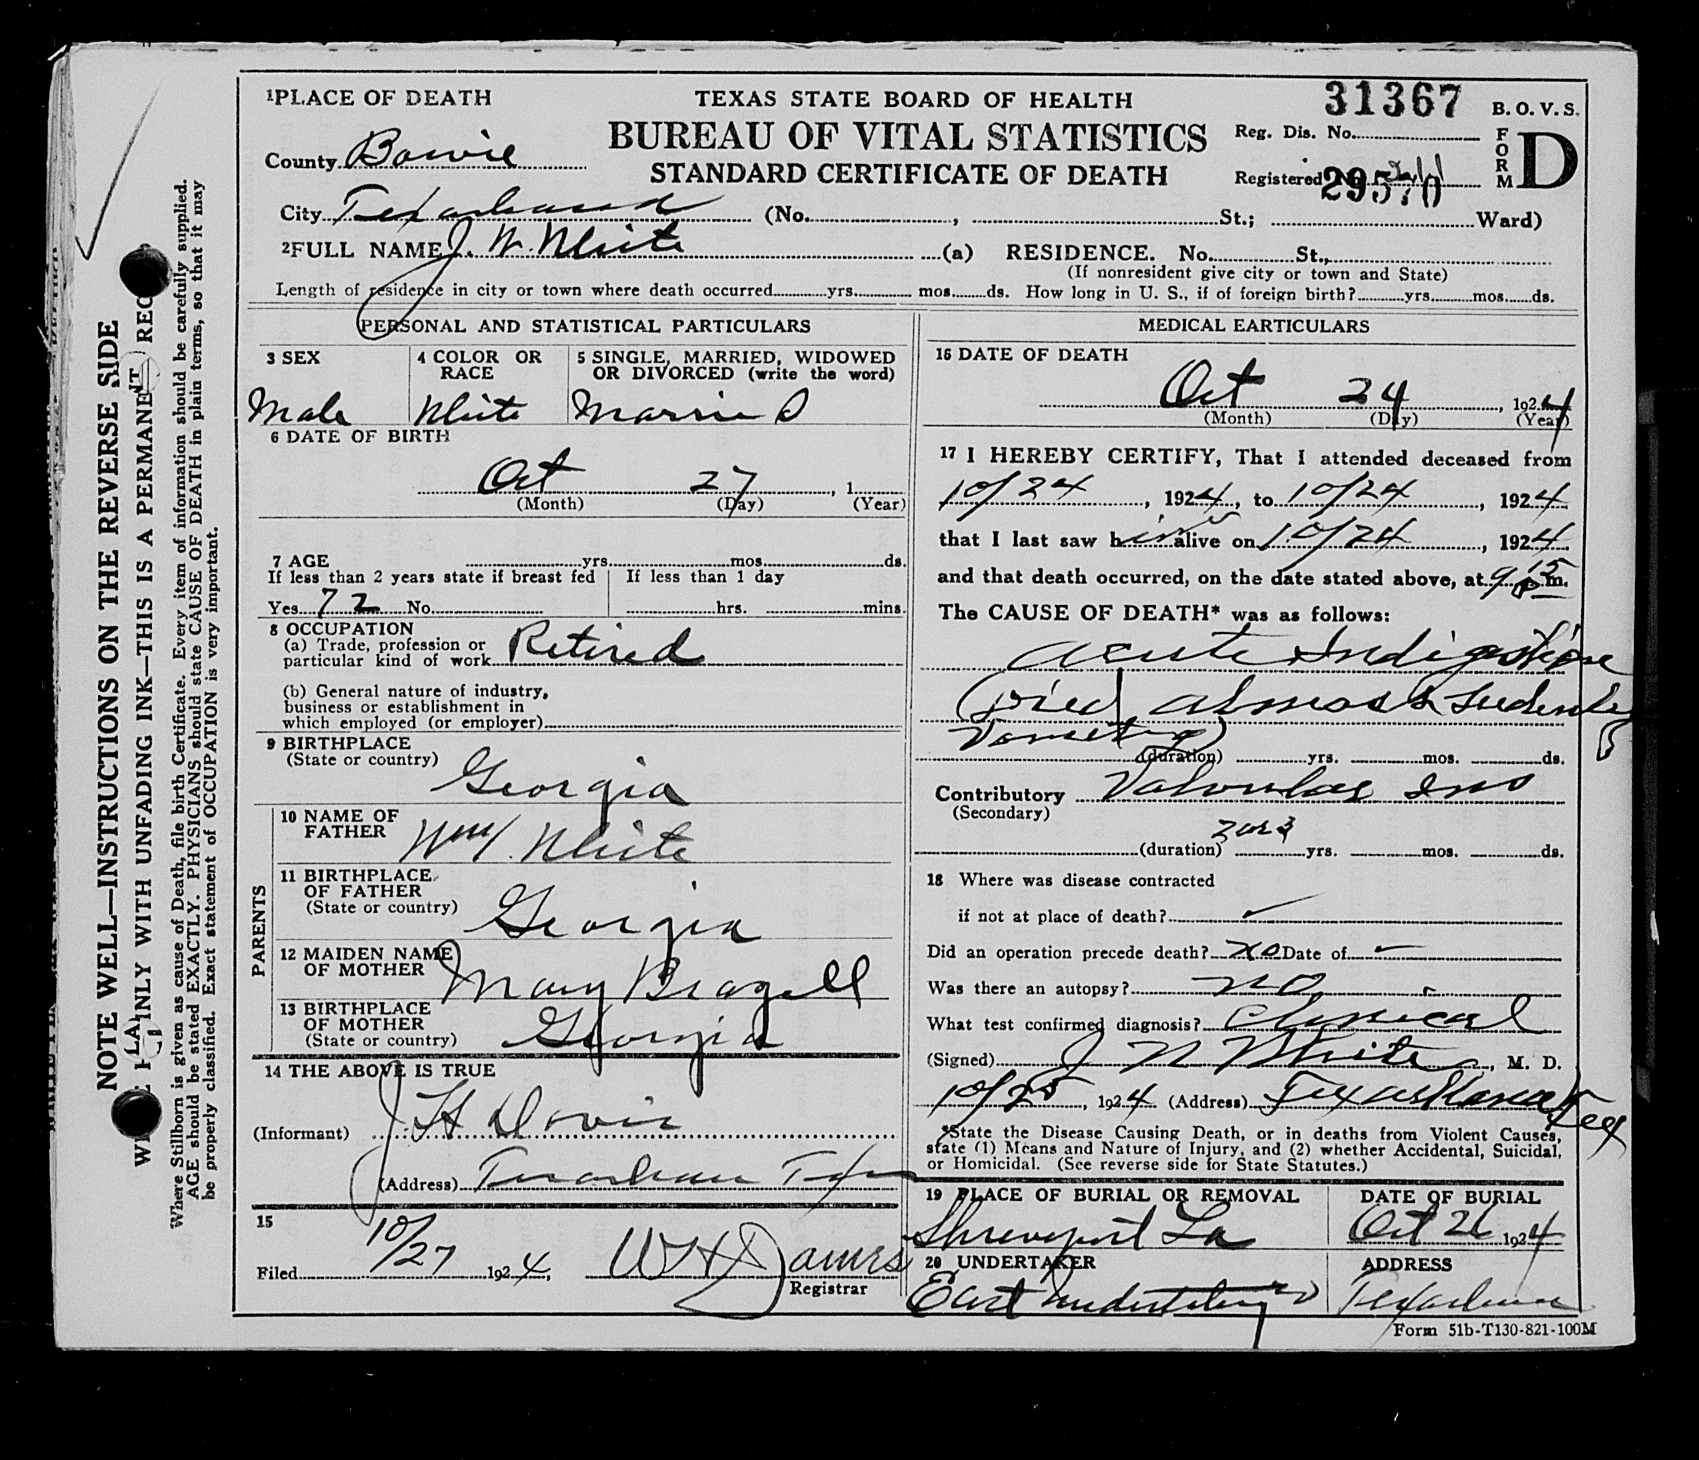 1 PLACE OF DEATH
TEXAS STATE BOARD OF HEALTH
31367 B. O. V. S.
County Bowie
BUREAU OF VITAL STATISTICS
Reg. Dis. No.
STANDARD CERTIFICATE OF DEATH
Registered No. 29570
FORM D
City Texarkana (No. , St.; Ward)
2 FULL NAME J. W. White (a) RESIDENCE. No. St.,
(If nonresident give city or town and State)
Length of residence in city or town where death occurred yrs. mos. ds. How long in U. S., if of foreign birth? yrs. mos. ds.
PERSONAL AND STATISTICAL PARTICULARS
3 SEX
Male
4 COLOR OR RACE
White
5 SINGLE, MARRIED, WIDOWED
OR DIVORCED (write the word)
Married
6 DATE OF BIRTH
Oct 27 , 1
(Month) (Day) (Year)
7 AGE yrs. mos. ds.
If less than 2 years state if breast fed
If less than 1 day
Yes 72 No
hrs. mins.
8 OCCUPATION
(a) Trade, profession or
particular kind of work Retired
(b) General nature of industry,
business or establishment in
which employed (or employer)
9 BIRTHPLACE
(State or country)
Georgia
PARENTS
10 NAME OF
FATHER Wm. White
11 BIRTHPLACE
OF FATHER
(State or country) Georgia
12 MAIDEN NAME
OF MOTHER Mary
13 BIRTHPLACE
OF MOTHER
(State or country) Georgia
14 THE ABOVE IS TRUE
(Informant) J H
(Address) Texarkana Tex
15
Filed 10/27 1924,
W H
Registrar
MEDICAL EARTICULARS
16 DATE OF DEATH
Oct 24 , 1924
(Month) (Day) (Year)
17 I HEREBY CERTIFY, That I attended deceased from
10/24 , 1924, to 10/24 , 1924
that I last saw him alive on 10/24 , 1924
and that death occurred, on the date stated above, at 9 15 P m.
The CAUSE OF DEATH* was as follows:
Acute Indigestion
(Died almost suddenly
Vomiting)
(duration) yrs. mos. ds.
Contributory Valvular Ins
(Secondary)
2 or 3
(duration) yrs. mos. ds.
18 Where was disease contracted
if not at place of death?
Did an operation precede death? no Date of -
Was there an autopsy? no
What test confirmed diagnosis? Clinical
(Signed) J N White , M. D.
10/25 , 1924 (Address) Texarkana Tex
*State the Disease Causing Death, or in deaths from Violent Causes,
state (1) Means and Nature of Injury, and (2) whether Accidental, Suicidal,
or Homicidal. (See reverse side for State Statutes.)
19 PLACE OF BURIAL OR REMOVAL
Shreveport La
DATE OF BURIAL
Oct 26 1924
20 UNDERTAKER
East Undertaking Co
ADDRESS
Texarkana
Form 51b-T130-821-100M
NOTE WELL—INSTRUCTIONS ON THE REVERSE SIDE
PLAINLY WITH UNFADING INK—THIS IS A PERMANENT REC
Where Stillborn is given as cause of Death, file birth Certificate. Every item of information should be carefully supplied.
AGE should be stated EXACTLY. PHYSICIANS should state CAUSE OF DEATH in plain terms, so that it may
be properly classified. Exact statement of OCCUPATION is very important.